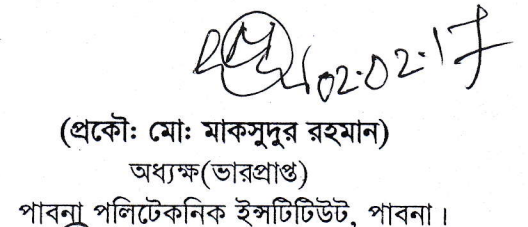 02.02.17
(প্রকৌঃ মোঃ মাকসুদুর রহমান)
অধ্যক্ষ(ভারপ্রাপ্ত)
পাবনা পলিটেকনিক ইন্সটিটিউট, পাবনা।